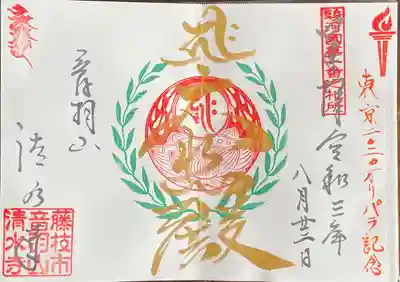 東京二〇二〇オリパラ記念
駿河国第一番札所
奉拝 令和三年
八月廿二日
殿
音羽山
清水寺
藤枝市
音羽山
清水寺